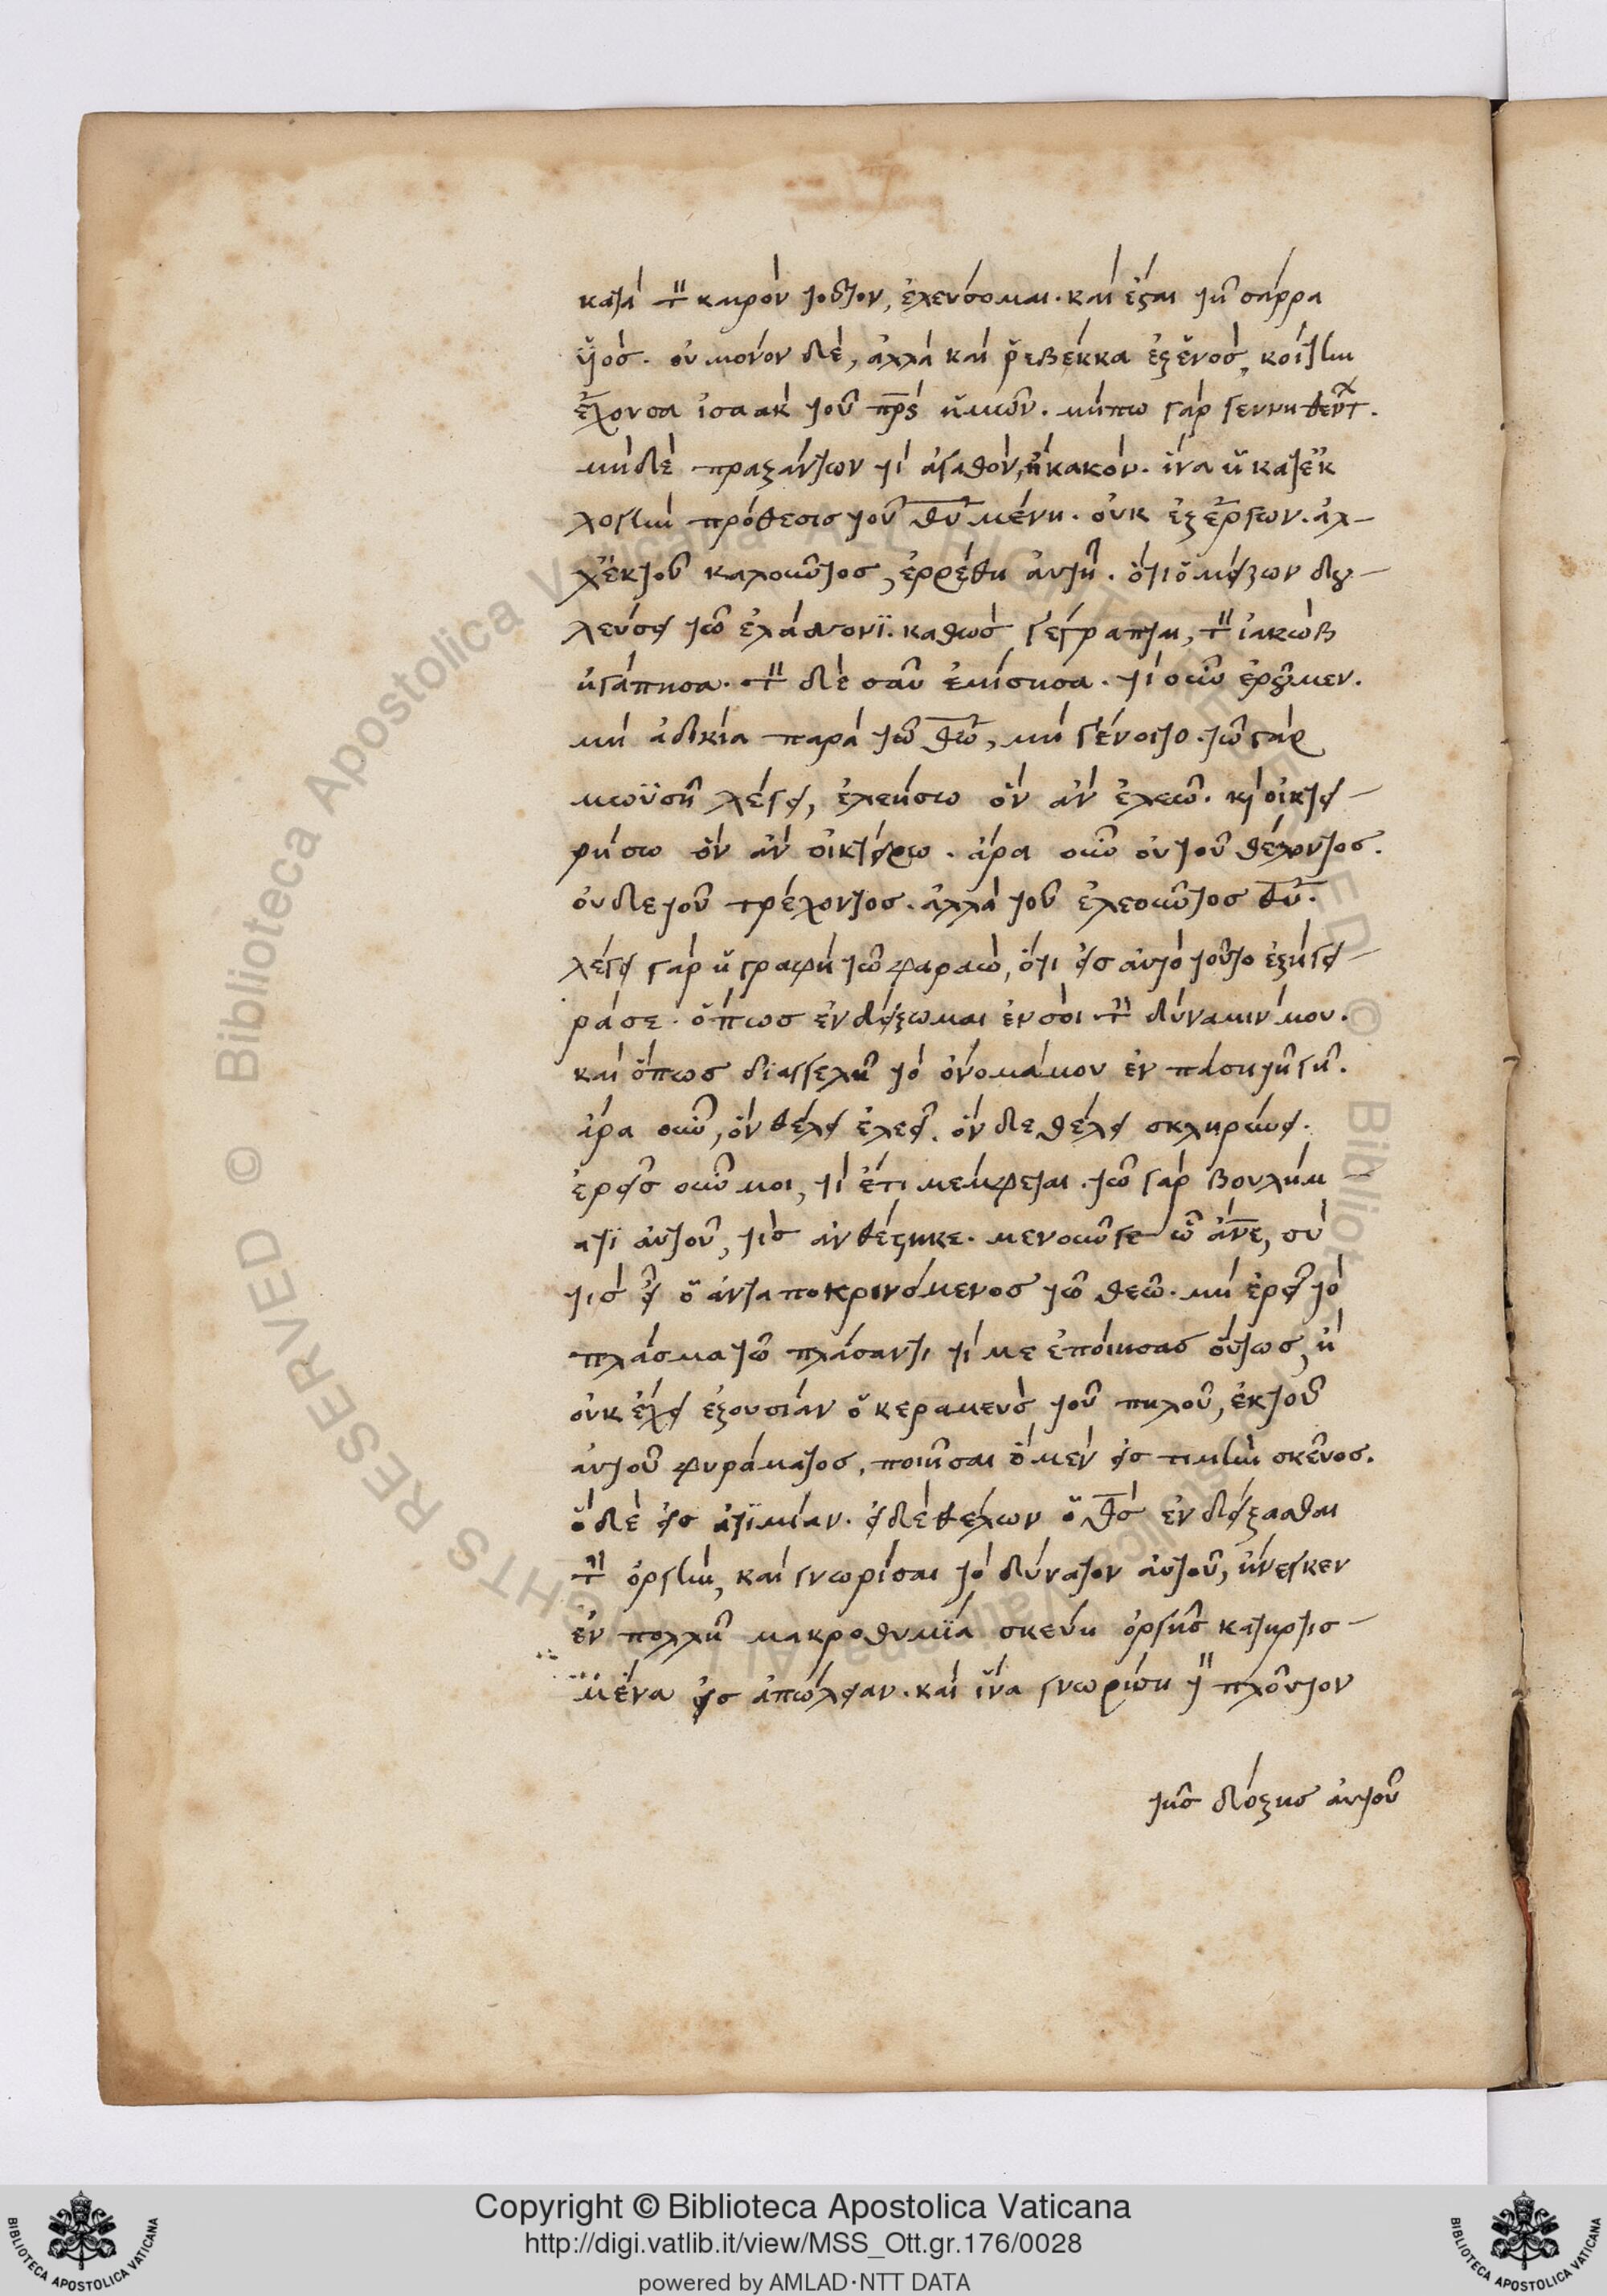 κατὰ τὸν καιρὸν τοῦτον, ἐλεύσομαι. καὶ ἔσται τῆ σάρρα
ὑϊός. οὐ μόνον δὲ, ἀλλὰ καὶ ῥεβέκκα ἐξενὸς, κοίτην
ἔχουσα ἰσαὰκ τοῦ π̅ρ̅ς ἡμῶν. μήπω γὰρ γεννηθέντων.
μηδὲ πραξάντων τὶ ἀγαθὸν, ἢ κακόν. ἵνα ἡ κατεκ
λογὴν πρόθεσις τοῦ θ̅υ̅ μένη. οὐκ ἐξ ἔργων. ἀλ-
λ' ἐκ τοῦ καλοῦντος, ἐρρέθη αὐτῆ. ὅτι ὁ μείζων δου-
λεύσει τῶ ἐλάσσονϊ. καθὼς γέγραπται, τὸν ἰακὼβ
ἠγάπησα. τὸν δὲ σαῦ ἐμίσησα. τί οὖν ἐροῦμεν.
μὴ ἀδικία παρὰ τῶ θ̅ω̅, μὴ γένοιτο. τῶ γὰρ
μωϋσῆ λέγει, ἐλεήσω ὃν ἂν ἐλεῶ. κ̀ οἰκτει-
ρήσω ὃν ἂν οἰκτείρω. ἄρα οὖν οὐ τοῦ θέλοντος.
οὐδὲ τοῦ τρέχοντος. ἀλλὰ τοῦ ἐλεοῦντος θ̅υ̅.
λέγει γὰρ ἡ γραφὴ τῶ φαραὼ, ὅτι εἰς αὐτὸ τοῦτο ἐξήγει-
ρά σε. ὅπως ἐνδείξωμαι ἐν σοὶ τὴν δύναμίν μου.
καὶ ὅπως διαγγελῆ τὸ ὄνομά μου ἐν πάση τῆ γῆ.
ἄρα οὖν, ὃν θέλει ἐλεεῖ. ὃν δὲ θέλει σκληρύνει.
ἐρεῖς οὖν μοι, τί ἔτι μέμφεται. τῶ γὰρ βουλήμ-
ατϊ αὐτοῦ, τίς ἀνθέστηκε. μενοῦνγε ὦ ἄ̅ν̅ε̅, σὺ
τίς εἶ ὁ ἀνταποκρινόμενος τῶ θεῶ. μὴ ἐρεῖ τὸ
πλάσμα τῶ πλάσαντι τί με ἐποίησας οὕτως, ἢ
οὐκ ἔχει ἐξουσίαν ὁ κεραμεὺς τοῦ πηλοῦ, ἐκ τοῦ
αὐτοῦ φυράματος, ποιῆσαι ὃ μὲν εἰς τιμὴν σκεῦος.
ὃ δὲ εἰς ἀτϊμίαν. εἰ δὲ θέλων ὁ θ̅ς̅ ἐνδείξασθαι
τὴν ὀργὴν, καὶ γνωρίσαι τὸ δύνατον αὐτοῦ, ἤνεγκεν
ἐν πολλῆ μακροθυμϊά σκεύη ὀργῆς κατηρτισ-
μένα εἰς ἀπώλειαν. καὶ ἵνα γνωρίση τὸν πλοῦτον
τῆς δόξης αὐτοῦ
Copyright © Biblioteca Apostolica Vaticana
http://digi.vatlib.it/view/MSS_Ott.gr.176/0028
powered by AMLAD·NTT DATA